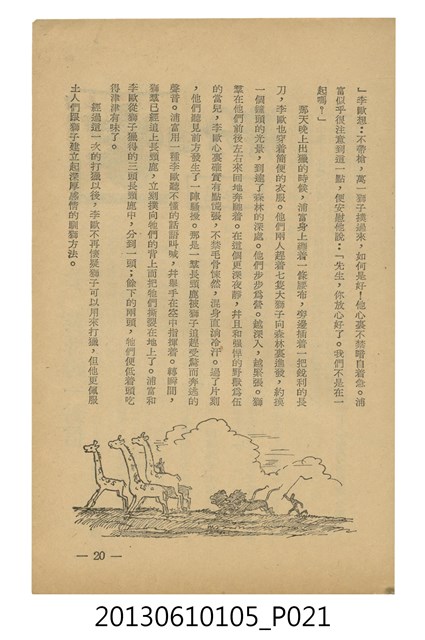 」李歐想：不帶槍，萬一獅子撲過來，如何是好！他心裏不禁暗自着急。浦
富似乎很注意到這一點，便安慰他說：「先生，你放心好了。我們不是在一
起嗎？」
那天晚上出獵的時候，浦富身上纏着一條腰布，旁邊插着一把銳利的長
刀，李歐也穿着簡便的衣服。他們兩人趕着七隻大獅子向森林裏進發，約摸
一個鐘頭的光景，到達了森林的深處。他們步步為營。越深入，越緊張。獅
羣在他們前後左右來回地奔跑着。在這個更深夜靜，幷且和強悍的野獸為伍
的當兒，李歐心裏確實有點慌張，不禁毛骨悚然，混身直淌冷汗。過了片刻
，他們聽見前方發生了一陣騷擾。那是一羣長頸鹿被獅子追趕受驚而奔逃的
聲音。浦富用一種李歐聽不懂的話語叫喊，幷舉手在空中指揮着。轉瞬間，
獅羣已經追上長頸鹿，立刻撲向牠們的背上而把牠們撕裂在地上了。浦富和
李歐從獅子獵得的三頭長頸鹿中，分到一頭；餘下的兩頭，牠們便低着頭吃
得津津有味了。
經過這一次的打獵以後，李歐不再懷疑獅子可以用來打獵，但他更佩服
土人們跟獅子建立起深厚感情的馴獅方法。
— 20 —
20130610105_P021